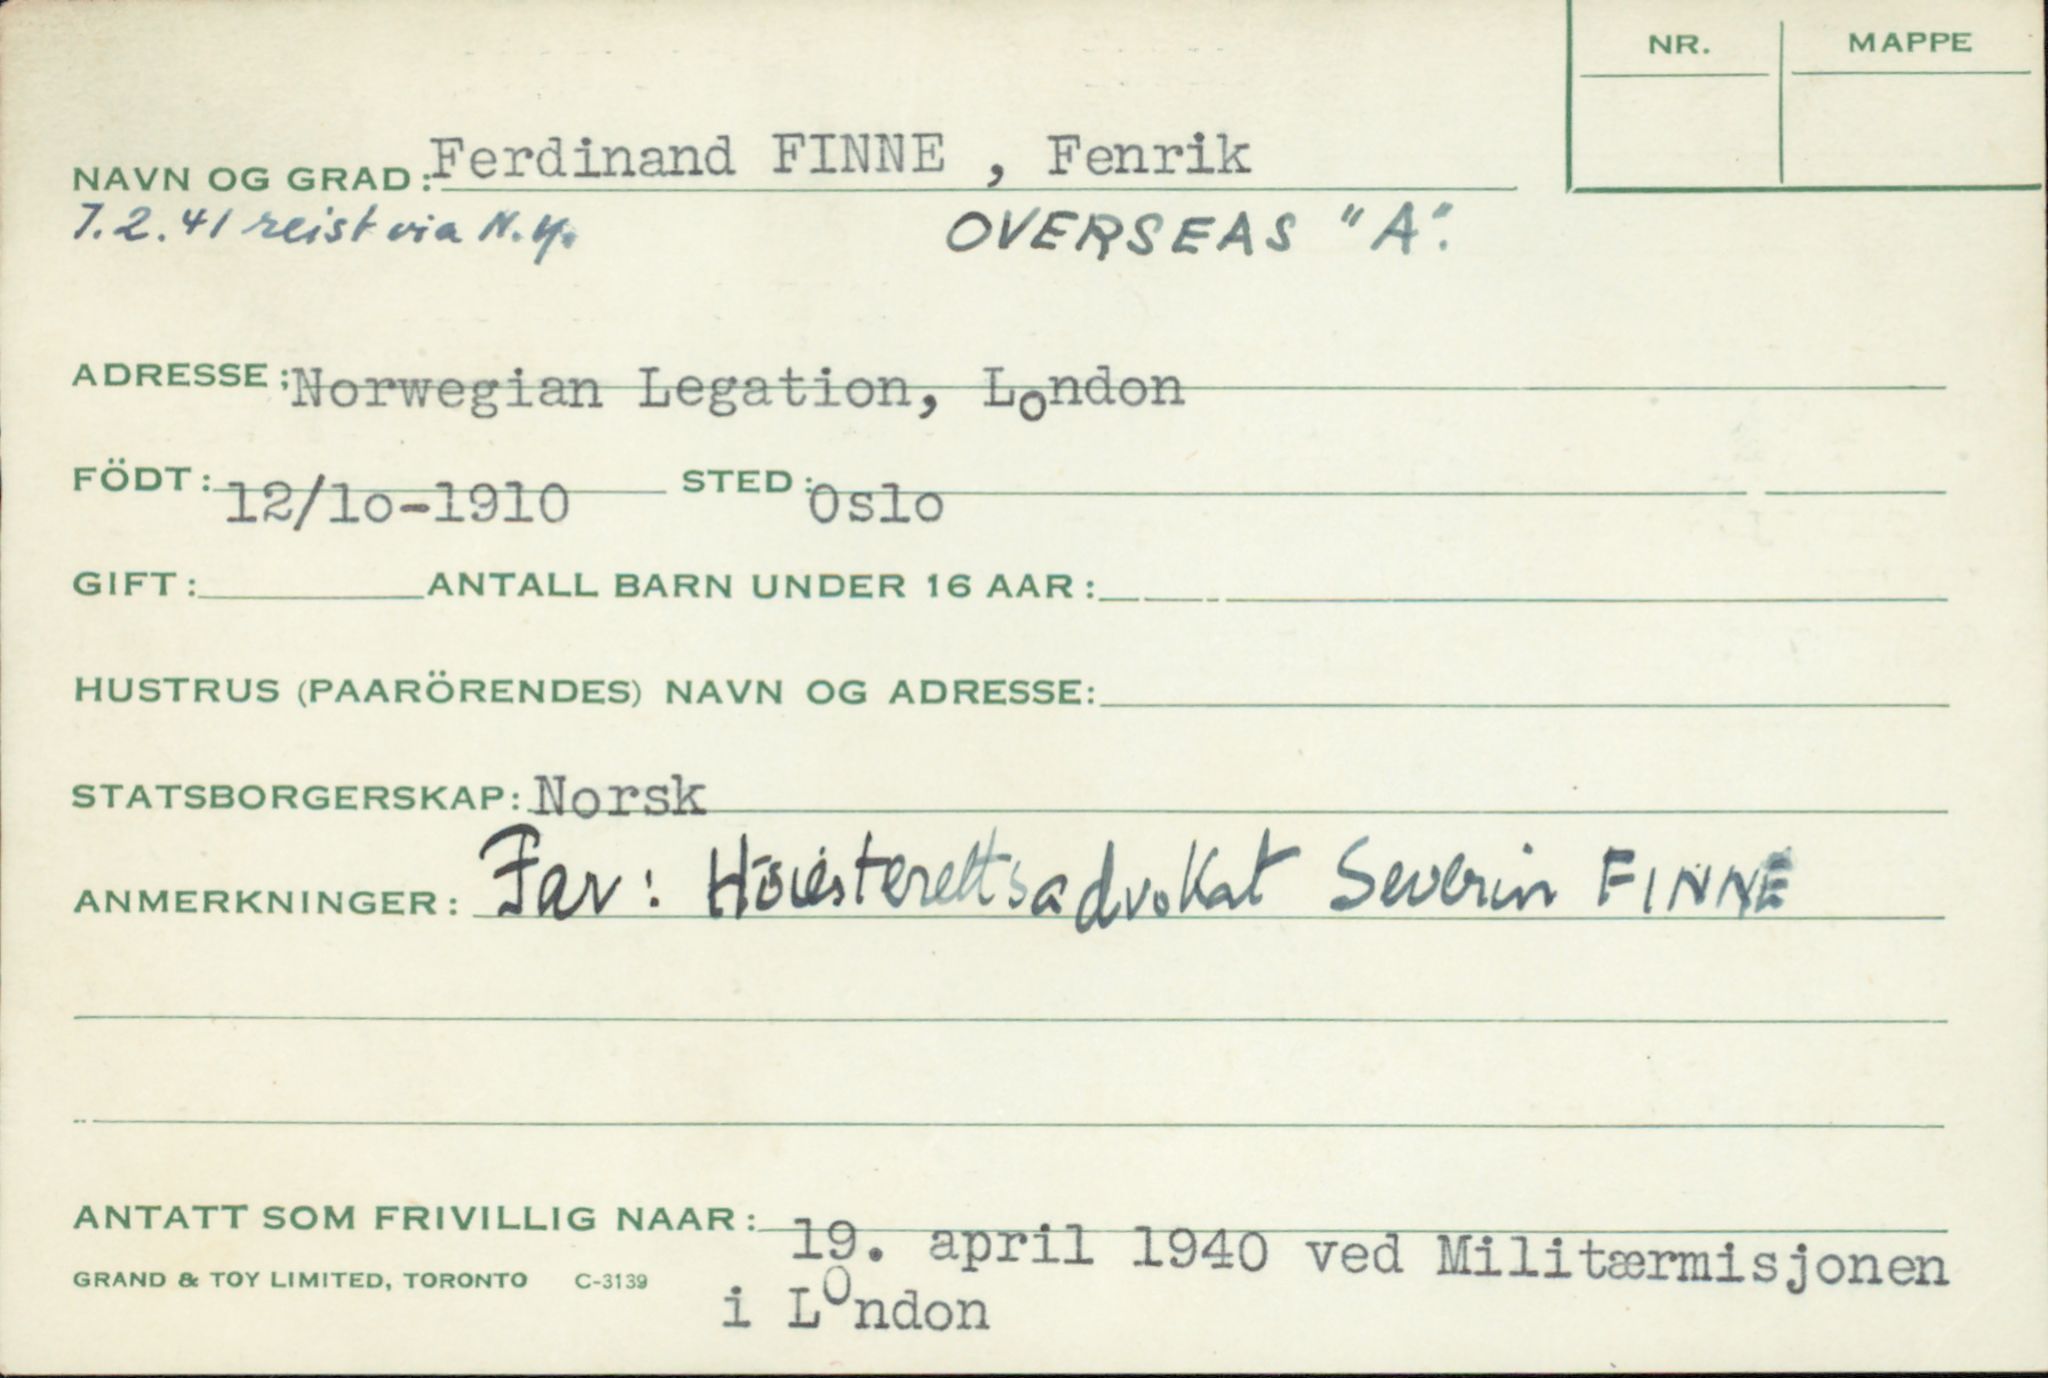 NR. MAPPE
NAVN OG GRAD: Ferdinand FINNE , Fenrik
7.2.41 reist via N.Y. OVERSEAS "A".
ADRESSE: Norwegian Legation, London
FÖDT: 12/1o-1910 STED: Oslo
GIFT: ANTALL BARN UNDER 16 AAR:
HUSTRUS (PAARÖRENDES) NAVN OG ADRESSE:
STATSBORGERSKAP: Norsk
ANMERKNINGER: Far: Höiesterettsadvokat Severin FINNE
ANTATT SOM FRIVILLIG NAAR: 19. april 1940 ved Militærmisjonen
GRAND & TOY LIMITED, TORONTO C-3139
i LOndon